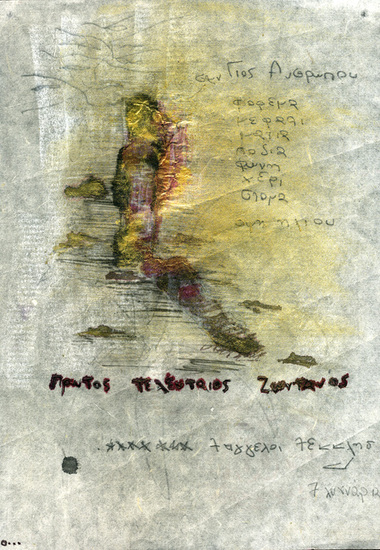 σαν Γιος Ανθρωπου
φορεμα
κεφαλι
ματια
ποδια
φωνη
χερι
στομα
οψη ηλιου
Πρωτος τελευταιος Ζωντανος
**** *** 7 αγγελοι 7 εκκλησ
7 λυχναρια